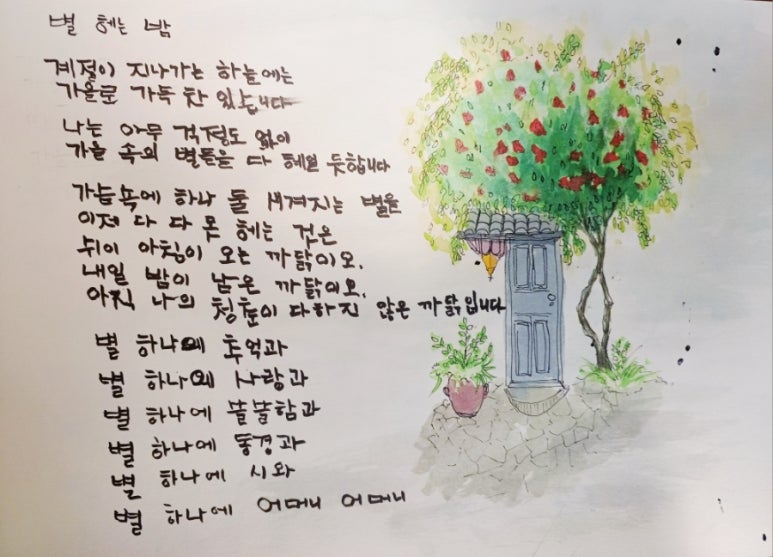 별 헤는 밤
계절이 지나가는 하늘에는
가을로 가득 찬 있습니다
나는 아무 걱정도 없이
가을 속의 별들을 다 헤일 듯합니다
가슴속에 하나 둘 새겨지는 별을
이제 다 다 못 헤는 것은
쉬이 아침이 오는 까닭이오,
내일 밤이 남은 까닭이오,
아직 나의 청춘이 다하지 않은 까닭입니다
별 하나에 추억과
별 하나에 사랑과
별 하나에 쓸쓸함과
별 하나에 동경과
별 하나에 시와
별 하나에 어머니 어머니